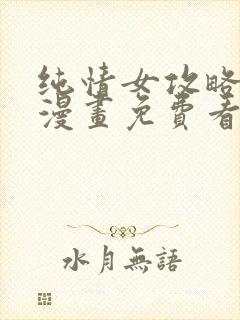 纯情女攻略
漫畫免費看
水月無語